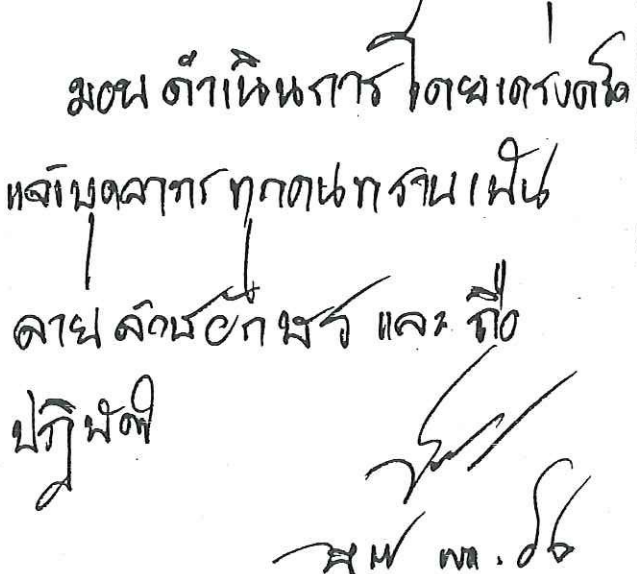 มอบดำเนินการโดยเคร่งครัด
แจ้งบุคลากรทุกคนทราบเป็น
ลายลักษณ์อักษร และถือ
ปฏิบัติ